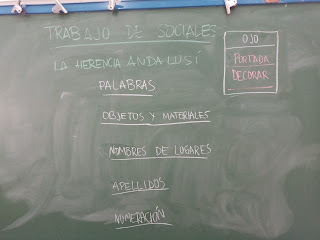 TRABAJO DE SOCIALES
LA HERENCIA ANDALUSÍ
PALABRAS
OBJETOS Y MATERIALES
NOMBRES DE LUGARES
APELLIDOS
NUMERACIÓN
OJO
PORTADA
DECORAR